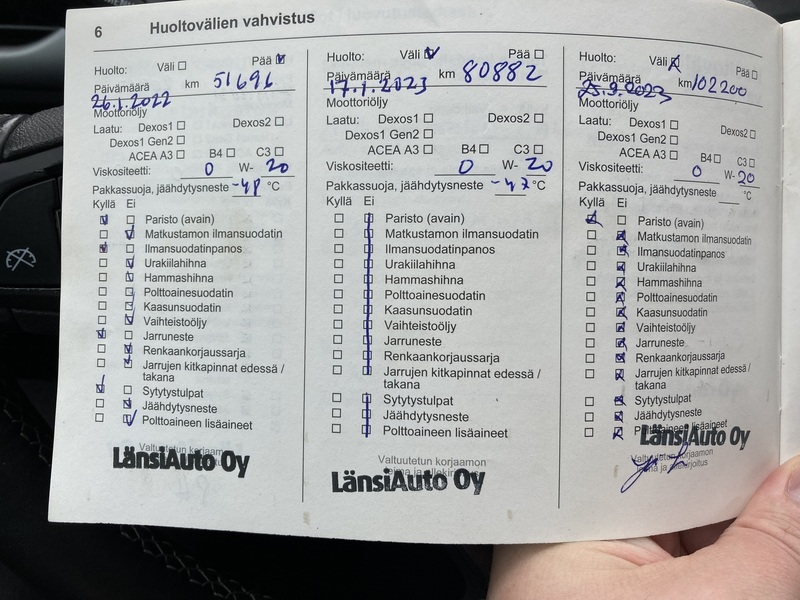 6 Huoltovälien vahvistus
Huolto: Väli ☐ Pää ☑
Päivämäärä km 51696
26.1.2022
Moottoriöljy
Laatu: Dexos1 ☐ Dexos2 ☐
Dexos1 Gen2 ☐
ACEA A3 ☐ B4 ☐ C3 ☐
Viskositeetti: 0 W- 20
Pakkassuoja, jäähdytysneste °C
Kyllä Ei
☑ ☐ Paristo (avain)
☐ ☑ Matkustamon ilmansuodatin
☑ ☐ Ilmansuodatinpanos
☐ ☑ Urakiilahihna
☐ ☑ Hammashihna
☐ ☑ Polttoainesuodatin
☐ ☑ Kaasunsuodatin
☐ ☑ Vaihteistoöljy
☑ ☐ Jarruneste
☐ ☑ Renkaankorjaussarja
☐ ☑ Jarrujen kitkapinnat edessä /
takana
☑ ☐ Sytytystulpat
☐ ☑ Jäähdytysneste
☐ ☑ Polttoaineen lisäaineet
Valtuutetun korjaamon
LänsiAuto Oy
Huolto: Väli ☑ Pää ☐
Päivämäärä km 80882
17.1.2023
Moottoriöljy
Laatu: Dexos1 ☐ Dexos2 ☐
Dexos1 Gen2 ☐
ACEA A3 ☐ B4 ☐ C3 ☐
Viskositeetti: 0 W- 20
Pakkassuoja, jäähdytysneste °C
Kyllä Ei
☐ ☑ Paristo (avain)
☐ ☑ Matkustamon ilmansuodatin
☐ ☑ Ilmansuodatinpanos
☐ ☑ Urakiilahihna
☐ ☑ Hammashihna
☐ ☑ Polttoainesuodatin
☐ ☑ Kaasunsuodatin
☐ ☑ Vaihteistoöljy
☐ ☑ Jarruneste
☐ ☑ Renkaankorjaussarja
☐ ☑ Jarrujen kitkapinnat edessä /
takana
☐ ☑ Sytytystulpat
☐ ☑ Jäähdytysneste
☐ ☑ Polttoaineen lisäaineet
Valtuutetun korjaamon
LänsiAuto Oy
Huolto: Väli ☑ Pää ☐
Päivämäärä km 102200
25.9.2023
Moottoriöljy
Laatu: Dexos1 ☐ Dexos2 ☐
Dexos1 Gen2 ☐
ACEA A3 ☐ B4 ☐ C3 ☐
Viskositeetti: 0 W- 20
Pakkassuoja, jäähdytysneste °C
Kyllä Ei
☑ ☐ Paristo (avain)
☐ ☑ Matkustamon ilmansuodatin
☐ ☑ Ilmansuodatinpanos
☐ ☑ Urakiilahihna
☐ ☑ Hammashihna
☐ ☑ Polttoainesuodatin
☐ ☑ Kaasunsuodatin
☐ ☑ Vaihteistoöljy
☐ ☑ Jarruneste
☐ ☑ Renkaankorjaussarja
☐ ☑ Jarrujen kitkapinnat edessä /
takana
☐ ☑ Sytytystulpat
☐ ☑ Jäähdytysneste
☐ ☑ Polttoaineen lisäaineet
LänsiAuto Oy
Valtuutetun korjaamon
leima ja allekirjoitus